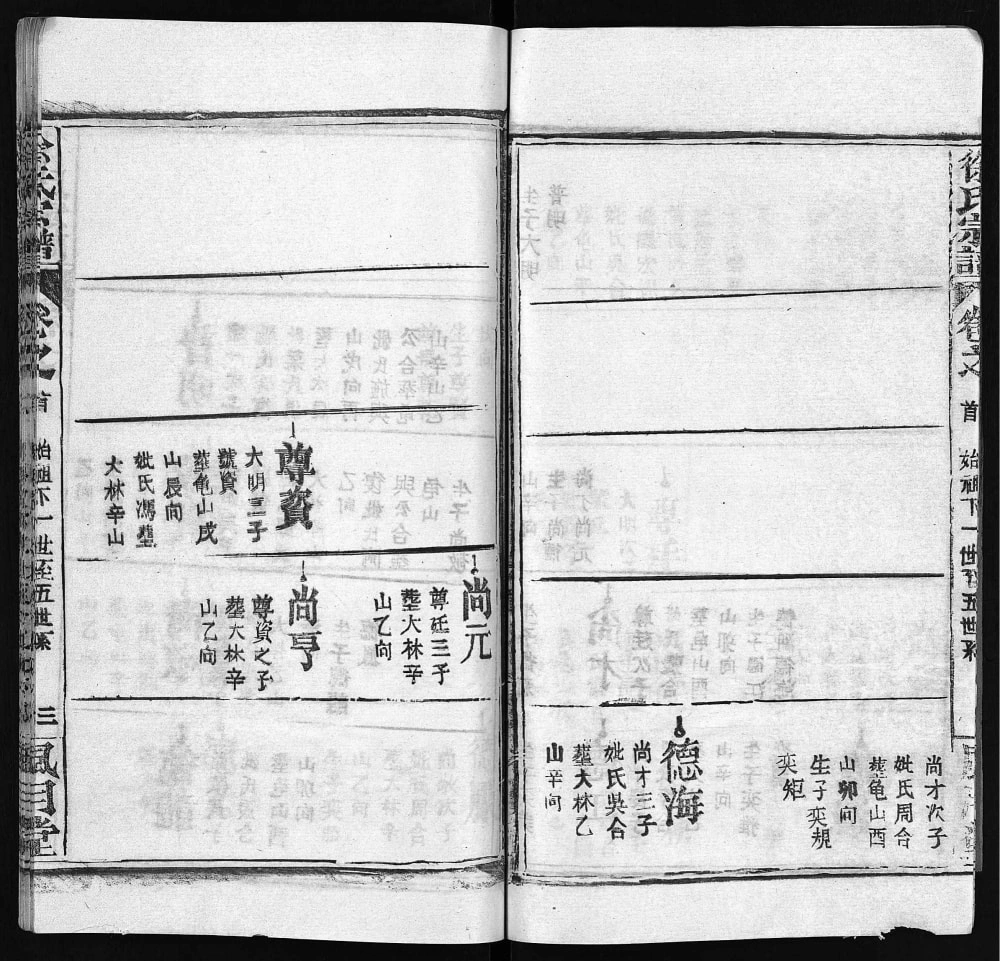 徐氏宗譜
卷之
首
始祖下一世至五世系
尚才次子
妣氏周合
塟龜山酉
山卯向
生子奕規
奕矩
德海
尚才三子
妣氏吳合
塟大林乙
山辛向
尊資
大明三子
號資
塟龜山戌
山辰向
妣氏馮塟
大林辛山
尚元
尊廷三子
塟大林辛
山乙向
尚亨
尊資之子
塟大林辛
山乙向
宗譜
卷之
首
始祖下一世至五世系
三
風月堂